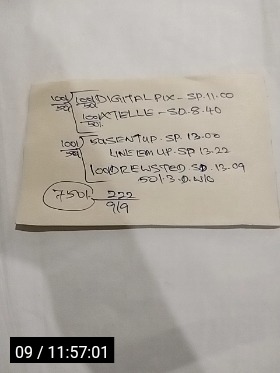 100/50/ 100/50/ DIGITAL PIX - SP. 11.00
100/50/ AXTELLE - SD. 8.40
100/50/ 50/ SENTUP. SP. 13.00
LINE'EM UP. SP 13.22
100/ DREWSTED. SD. 13.09
50/. 3. D. W/O
750/. 222
9/9
09 / 11:57:01